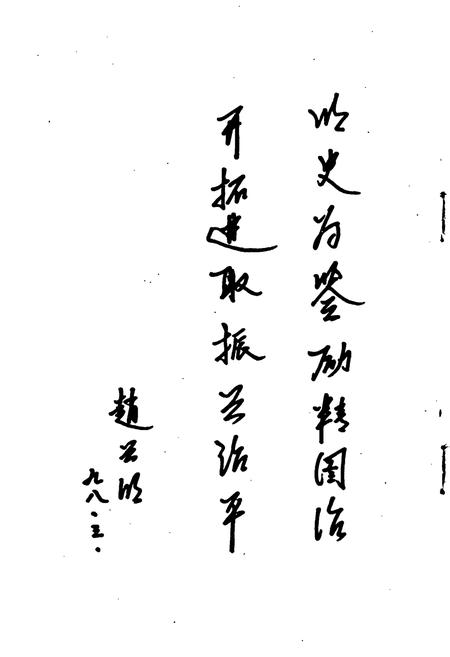 以史为鉴励精图治
开拓进取振兴治平
趙兴
九八.三.